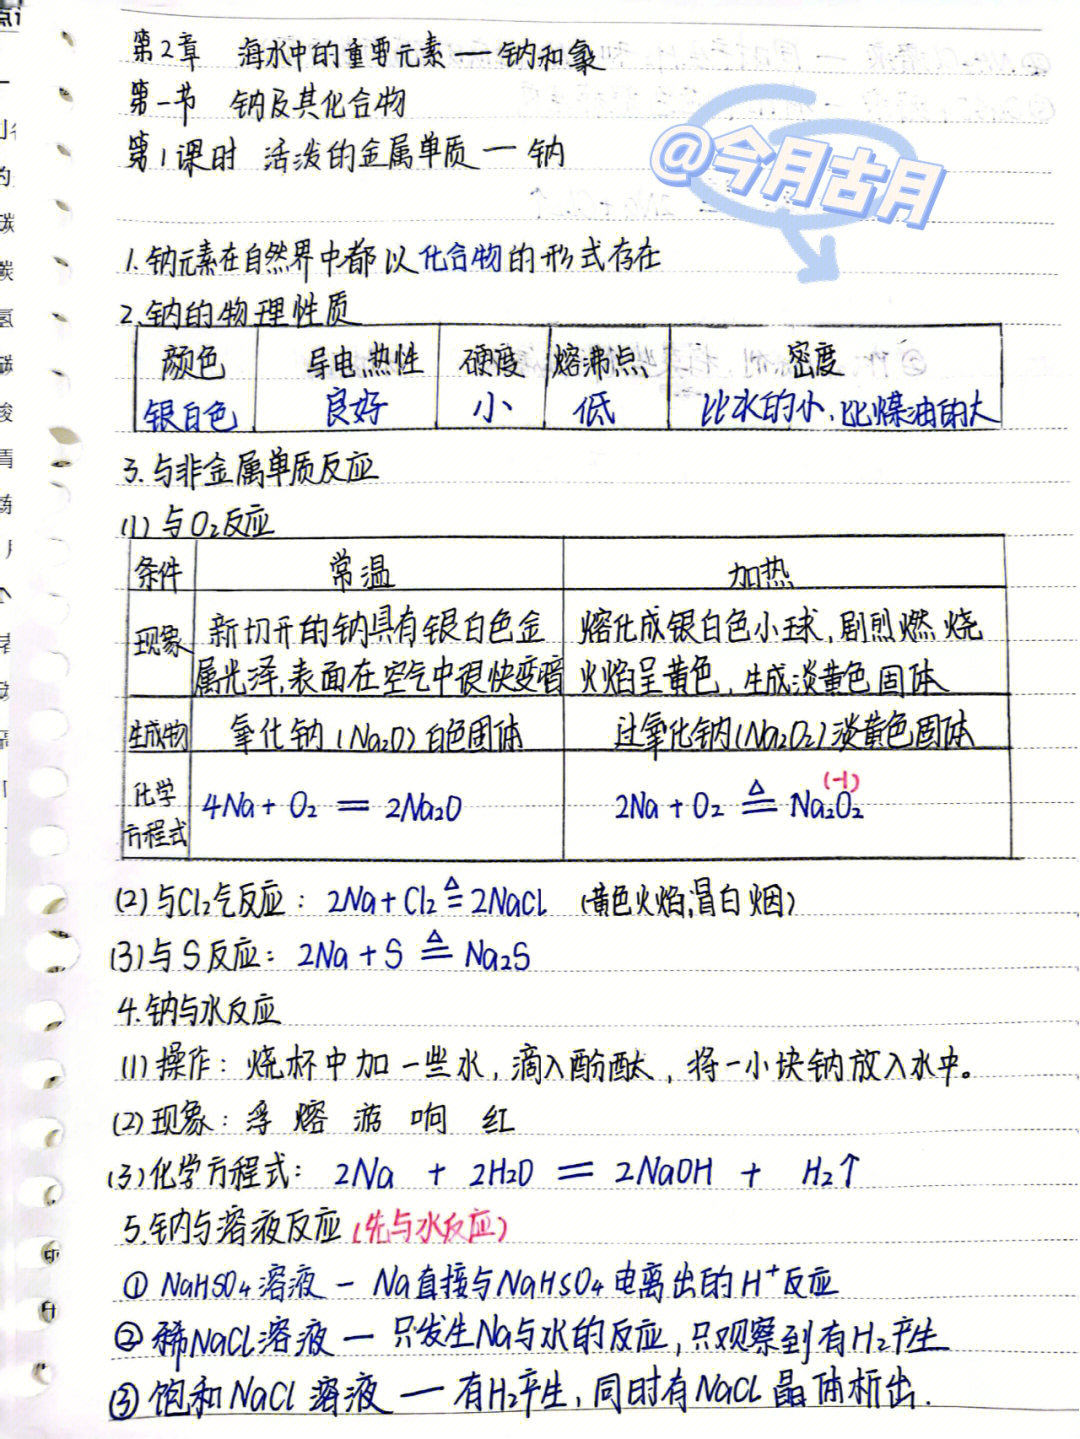 第2章 海水中的重要元素——钠和氯
第一节 钠及其化合物
第1课时 活泼的金属单质—钠
@今月古月
1.钠元素在自然界中都以化合物的形式存在
2.钠的物理性质
颜色 导电热性 硬度 熔沸点 密度
银白色 良好 小 低 比水的小,比煤油的大
3.与非金属单质反应
(1)与O₂反应
条件 常温 加热
现象 新切开的钠具有银白色金 熔化成银白色小球,剧烈燃烧
属光泽,表面在空气中很快变暗 火焰呈黄色,生成淡黄色固体
生成物 氧化钠(Na₂O)白色固体 过氧化钠(Na₂O₂)淡黄色固体
(-1)
化学
方程式 4Na + O₂ = 2Na₂O 2Na + O₂ ≜ Na₂O₂
(2)与Cl₂气反应: 2Na + Cl₂ ≜ 2NaCl (黄色火焰,冒白烟)
(3)与S反应: 2Na + S ≜ Na₂S
4.钠与水反应
(1)操作:烧杯中加一些水,滴入酚酞,将一小块钠放入水中。
(2)现象:浮 熔 游 响 红
(3)化学方程式: 2Na + 2H₂O = 2NaOH + H₂↑
5.钠与溶液反应(先与水反应)
① NaHSO₄溶液 — Na直接与NaHSO₄电离出的H⁺反应
② 稀NaCl溶液 — 只发生Na与水的反应,只观察到有H₂产生
③ 饱和NaCl溶液 — 有H₂产生,同时有NaCl晶体析出.